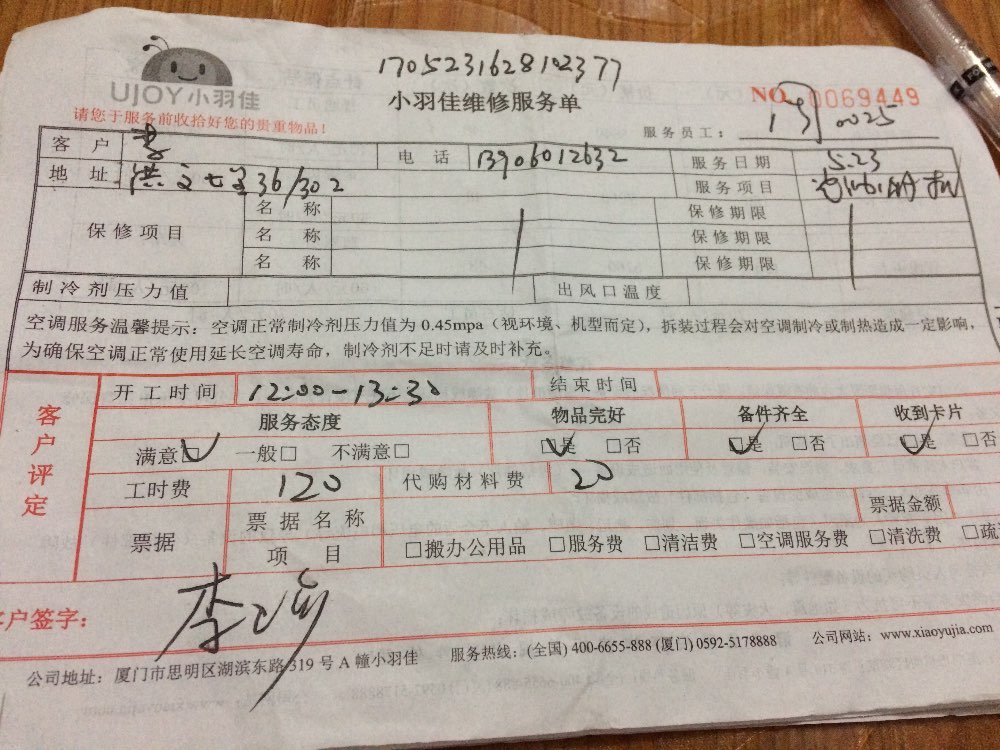 1705231628102377
UJOY小羽佳
小羽佳维修服务单
NO. 0069449
请您于服务前收拾好您的贵重物品!
服务员工: 0025
客户 李 电话 13906012632 服务日期 5.23
地址 洪文七里36/302 服务项目
保修项目 名称 保修期限
名称 保修期限
名称 保修期限
制冷剂压力值 出风口温度
空调服务温馨提示:空调正常制冷剂压力值为 0.45mpa(视环境、机型而定),拆装过程会对空调制冷或制热造成一定影响,
为确保空调正常使用延长空调寿命,制冷剂不足时请及时补充。
客户评定
开工时间 12:00-13:30 结束时间
服务态度 物品完好 备件齐全 收到卡片
满意☑ 一般□ 不满意□ ☑是 □否 ☑是 □否 ☑是 □否
工时费 120 代购材料费 20
票据 票据名称 票据金额
项目 □搬办公用品 □服务费 □清洁费 □空调服务费 □清洗费 □疏
客户签字:
公司地址:厦门市思明区湖滨东路 319 号 A 幢小羽佳 服务热线:(全国) 400-6655-888 (厦门) 0592-5178888 公司网站:www.xiaoyujia.com